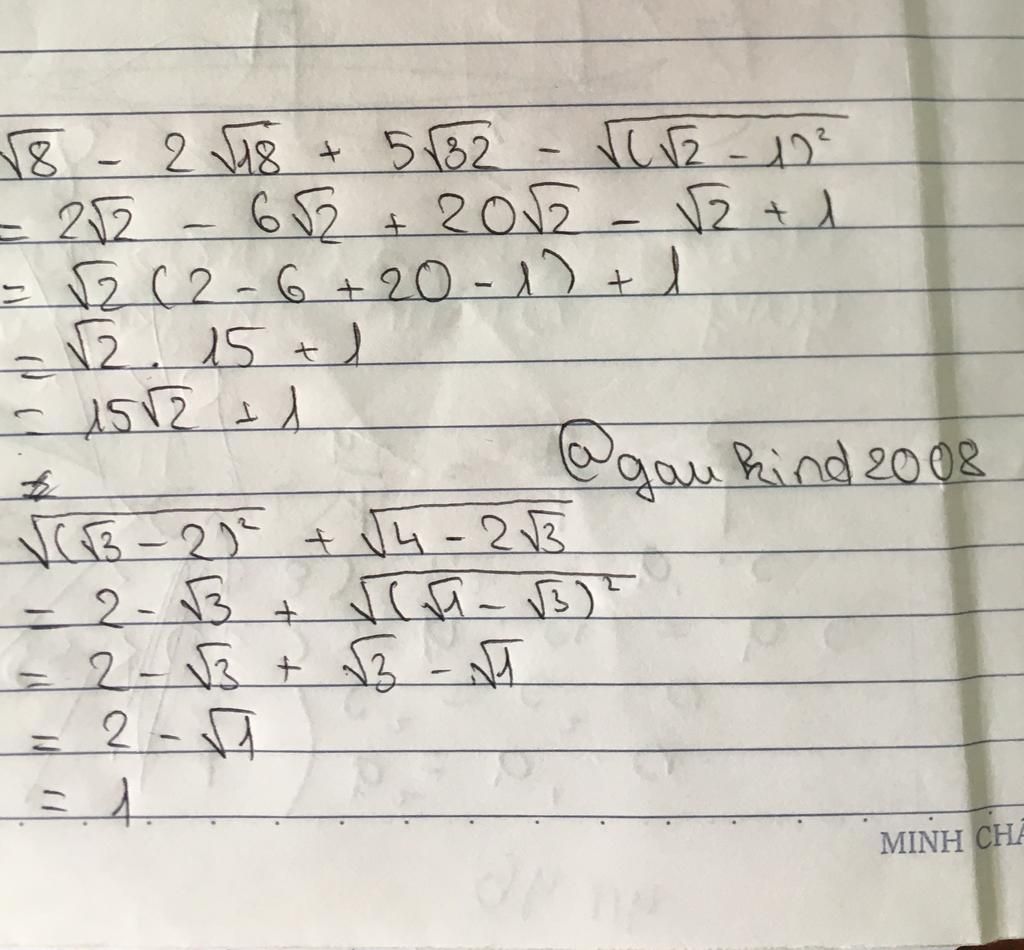 √8 - 2√18 + 5√32 - √(√2 - 1)²
= 2√2 - 6√2 + 20√2 - √2 + 1
= √2 (2 - 6 + 20 - 1) + 1
= √2 . 15 + 1
= 15√2 + 1
@gaukind2008
√(√3 - 2)² + √4 - 2√3
= 2 - √3 + √(√1 - √3)²
= 2 - √3 + √3 - √1
= 2 - √1
= 1
MINH